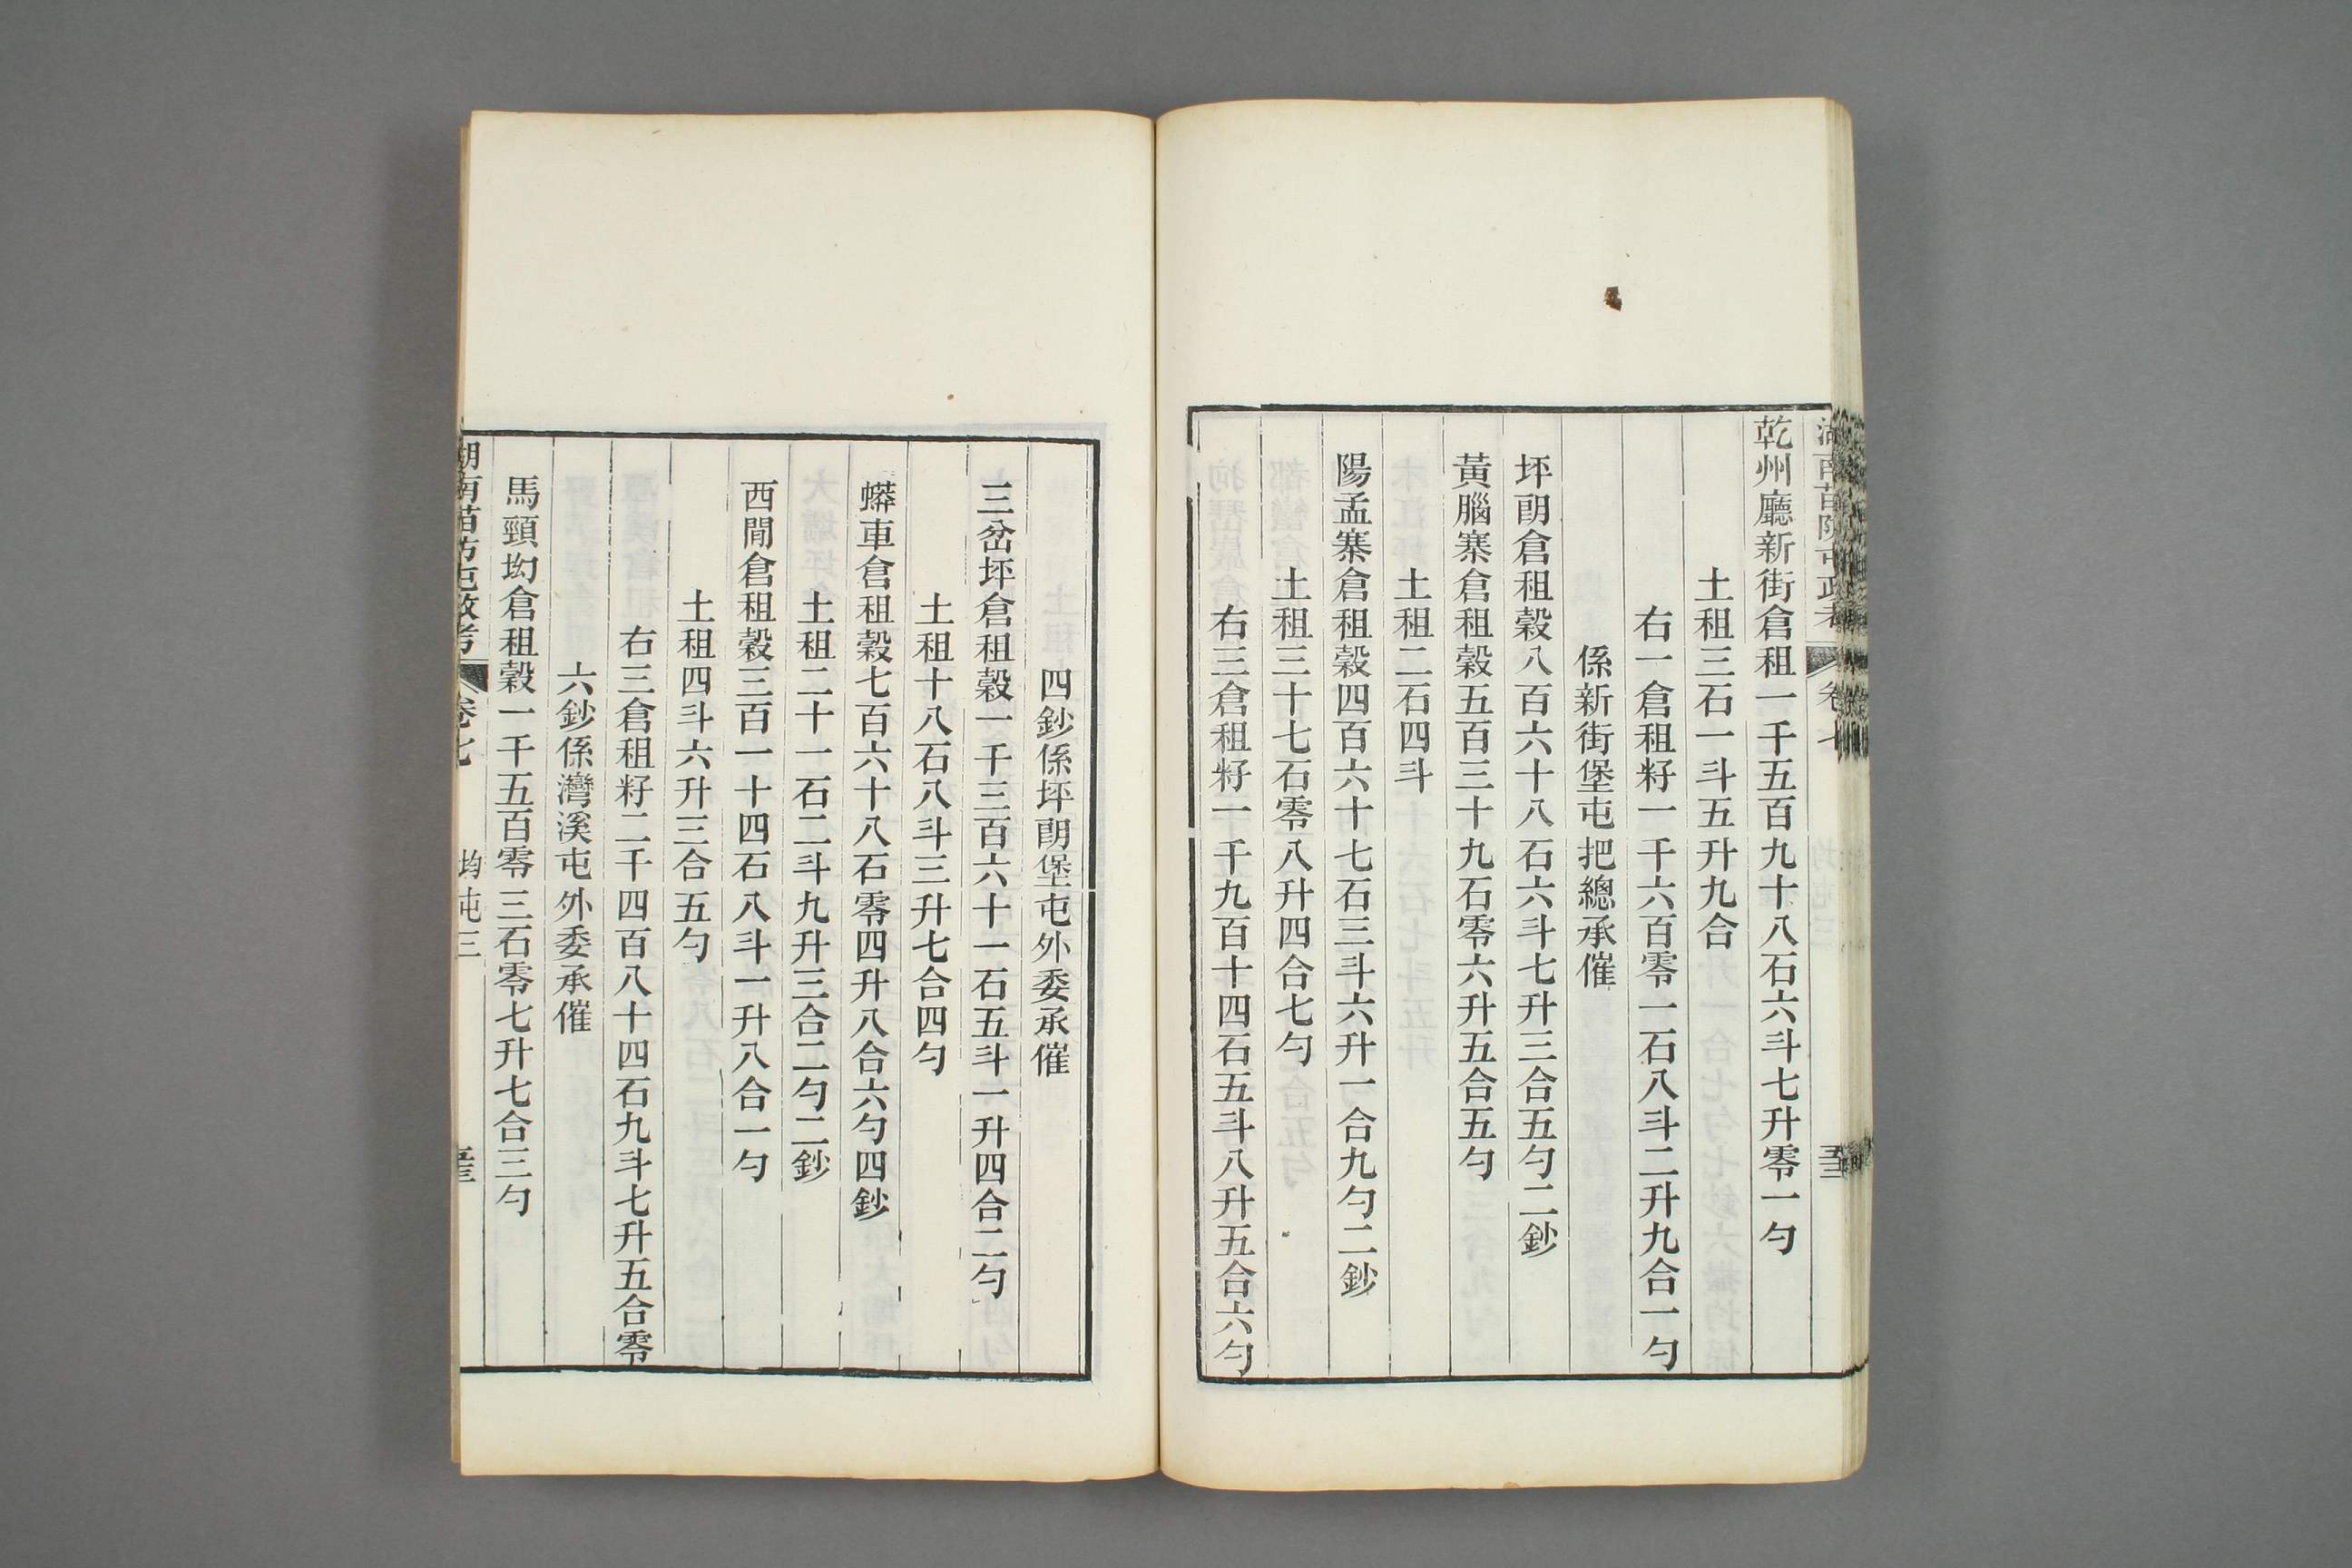 乾州廳新街倉租一千五百九十八石六斗七升零一勺
土租三石一斗五升九合
右一倉租籽一千六百零一石八斗二升九合一勺
係新街堡屯把總承催
坪朗倉租穀八百六十八石六斗七升三合五勺二鈔
黃腦寨倉租穀五百三十九石零六升五合五勺
土租二石四斗
陽孟寨倉租穀四百六十七石三斗六升一合九勺二鈔
土租三十七石零八升四合七勺
右三倉租籽一千九百十四石五斗八升五合六勺
四鈔係坪朗堡屯外委承催
三岔坪倉租穀一千三百六十一石五斗一升四合二勺
土租十八石八斗三升七合四勺
蟒車倉租穀七百六十八石零四升八合六勺四鈔
土租二十一石二斗九升三合二勺二鈔
西間倉租穀三百一十四石八斗一升八合一勺
土租四斗六升三合五勺
右三倉租籽二千四百八十四石九斗七升五合零
六鈔係灣溪屯外委承催
馬頸坳倉租穀一千五百零三石零七升七合三勺
湖南苗防屯政考 卷七 均屯三